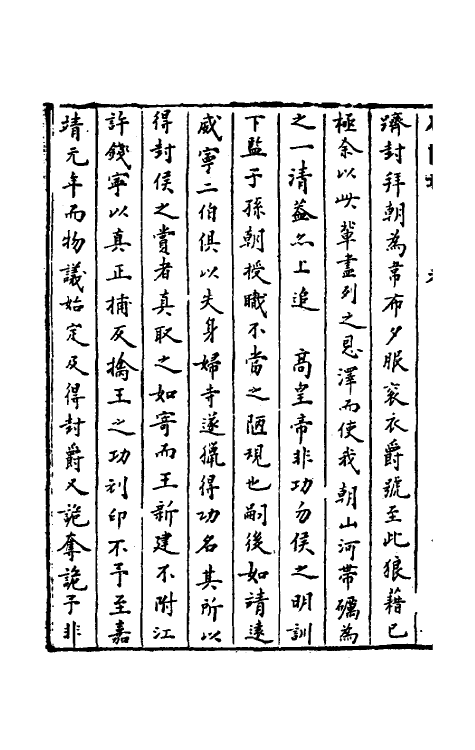 躋封拜朝為韋布夕服袞衣爵號至此狼藉已
極余以此輩盡列之恩澤而使我朝山河帶礪為
之一清蓋亦上追　高皇帝非功勿侯之明訓
下監子孫朝授職不當之陋規也嗣後如靖遠
威寧二伯俱以失身婦寺遂獵得功名其所以
得封侯之賞者真取之如寄而王新建不附江
許錢寧以真正捕反擒王之功刓印不予至嘉
靖元年而物議始定及得封爵又詭奪詭予非